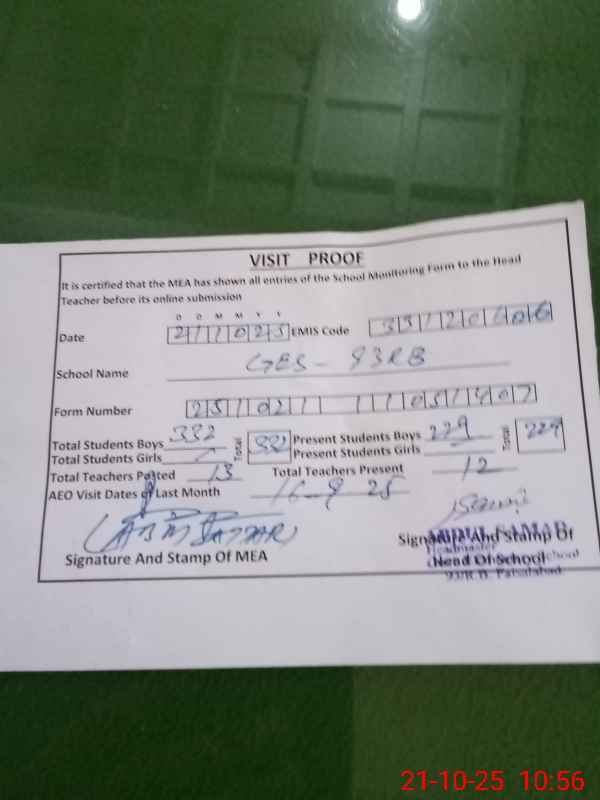 VISIT PROOF
It is certified that the MEA has shown all entries of the School Monitoring Form to the Head
Teacher before its online submission
D D M M Y Y
Date 211025 EMIS Code
School Name GES - 93RB
Form Number
Total Students Boys 332 Total 332 Present Students Boys 229 Total 229
Total Students Girls Present Students Girls
Total Teachers Posted 13 Total Teachers Present 12
AEO Visit Dates of Last Month 16-9-25
Signature And Stamp Of MEA
Signature And Stamp Of
Headmaster
Head Of School
93/R.B. Faisalabad.
21-10-25 10:56